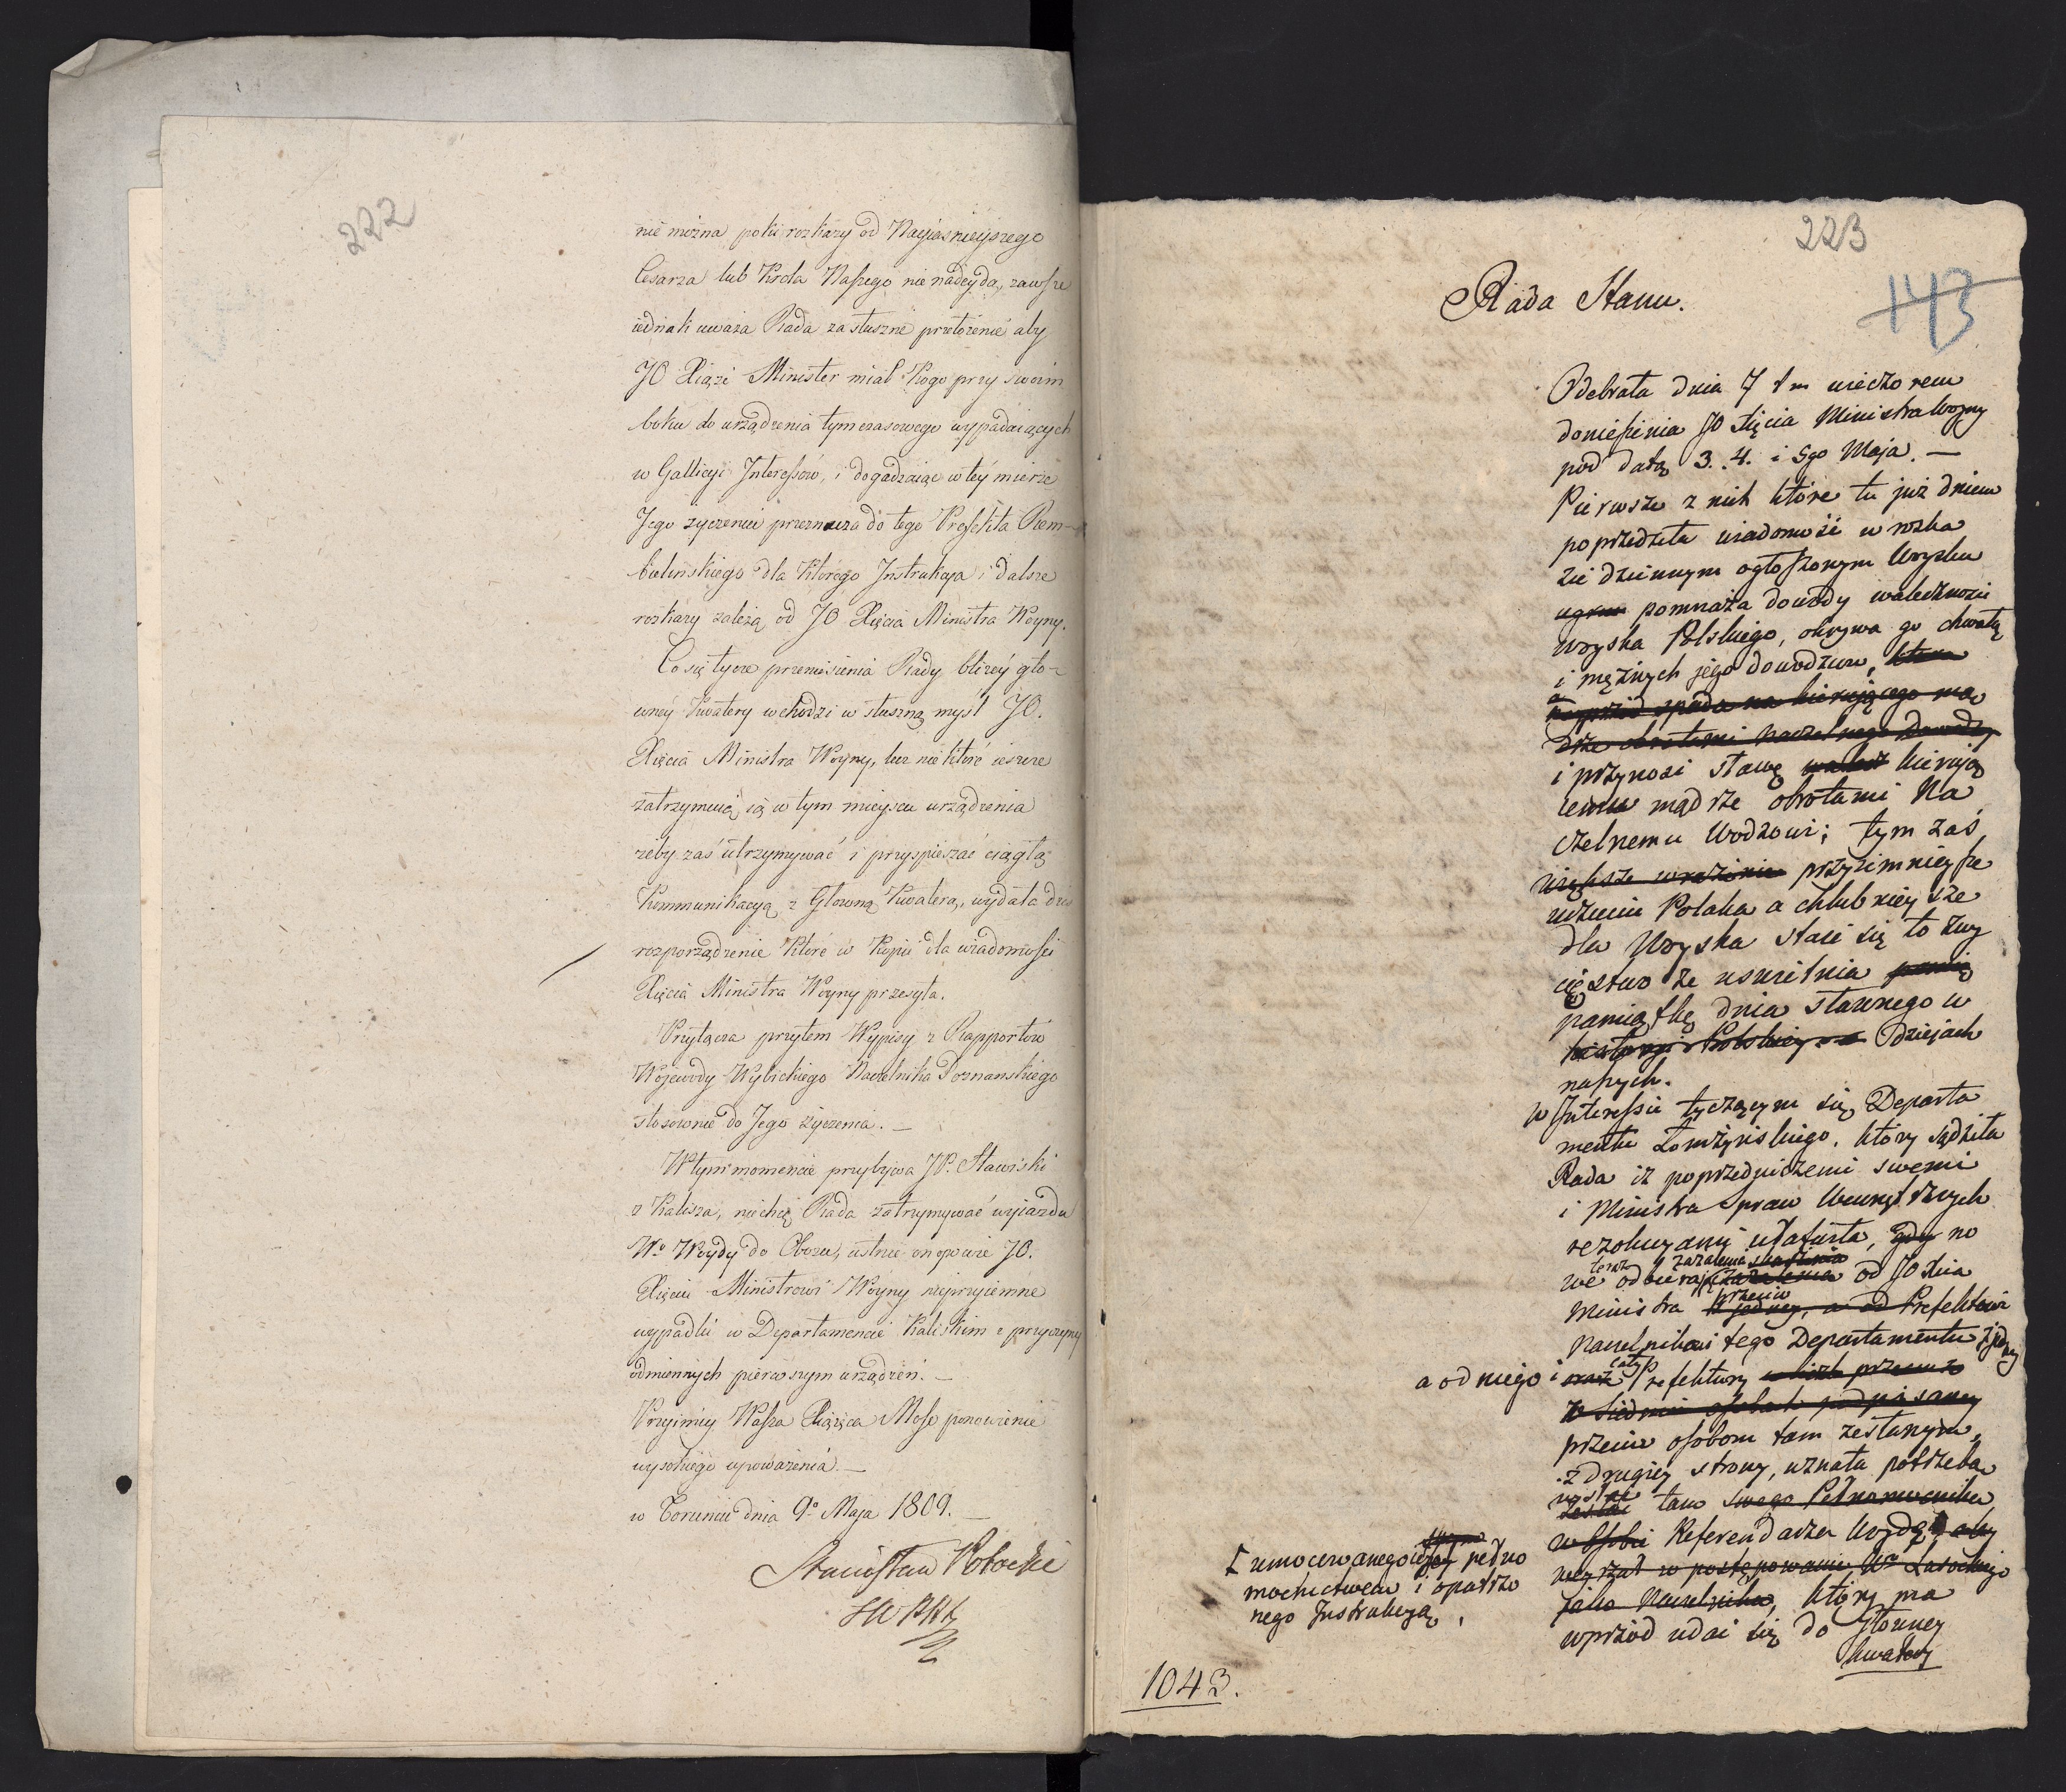 222
nie można poki rozkazy od Nayiasnieyszego
Cesarza lub Króla Naszego nie nadeydą, zawsze
iednak uważa Rada za słuszne przełożenie aby
JO Xiąże Minister miał Kogo przy swoim
boku do urządzenia tymczasowego wypadaiących
w Gallicyi Interessów, i dogadzaiąc w tey mierze
Jego życzeniu przeznacza do tego Prefekta Rem-
bielinskiego dla Którego Instrukcya i dalsze
rozkazy zależą od JO Xięcia Ministra Woyny.
Co się tycze przeniesienia Rady bliżey gło-
wney Kwatery wchodzi w słuszną myśl JO.
Xięcia Ministra Woyny, lecz nie które ieszcze
zatrzymuią ią w tym mieyscu urządzenia
żeby zaś utrzymywać i przyspieszać ciągłą
Kommunikacyą z Głowną Kwaterą, wydała dziś
rozporządzenie Które w Kopii dla wiadomości
Xięcia Ministra Woyny przesyła.
Przyłącza przytem Wypisy z Rapportów
Wojewody Wybickiego Naczelnika Poznanskiego
stosownie do Jego życzenia. —
W tym momencie przybywa JP. Stawiski
z Kalisza, niechcę Rada zatrzymywać wyjazdu
Wo Woydy do Obozu, ustnie on opowie JO.
Xięciu Ministrowi Woyny nieprzyiemne
wypadki w Departamencie Kaliskim z przyczyny
odmiennych pierwszym urządzeń. —
Przyimiy Wasza Xiążęca Mość ponowienie
wysokiego upoważenia. —
w Toruniu dnia 9o Maja 1809. —
Stanisław Potocki
223
143
Rada Stanu.
Odebrała dnia 7 t m wieczorem
doniesienia JO Xięcia Ministra Woyny
pod datą 3. 4. i 5go Maja. —
Pierwsze z nich które tu już dniem
poprzedziła wiadomość w rozka
zie dziennym ogłoszonym Woysku
pomnaża dowody waleczności
woyska Polskiego, okrywa go chwałą
i mężnych jego dowodzców, która
naprzód spada na kierującego mą
drze obrotami naczelnego Dowodzcy
i przynosi sławę kierują
cemu mądrze obrotami Na
czelnemu Wodzowi; tym zaś
większe wrażenie przyiemnieysze
uczuciu Polaka a chlubnieysze
dla Woyska staie się to zwy
cięstwo że uświetnia
pamiątkę dnia sławnego w
historyi Polskiey dziejach
naszych.
W Interessie tyczącym się Departa
mentu Łomżyńskiego, który sądziła
Rada iż poprzedniczemi swemi
i Ministra Spraw Wewnętrznych
rezolucyami ułatwiła, gdy no
teraz zażalenia
we odbierając zażalenia od JO Xcia
przeciw
Ministra z jedney, a od Prefektowi
Naczelnikowi tego Departamentu z jedney
a od niego i oraz całey Prefektury
w siedmiu osobach podpisaney
przeciw osobom tam zesłanym,
z drugiey strony, uznała potrzebę
wysłać
zesłać tam swego Pełnomocnika
w osobie Referendarza Woydę aby
weyrzał w postępowanie Wo Lasockiego
jako Naczelnika, który ma
wprzód udać się do Głowney
Kwatery
umocowanego pełno
mocnictwem i opatrzo
nego Instrukcyą,
1043.